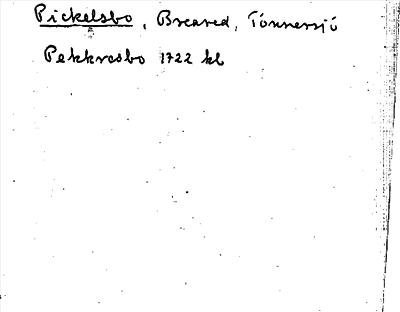 Pickelsbo, Breared, Tönnersjö
Pekkresbo 1722 kl